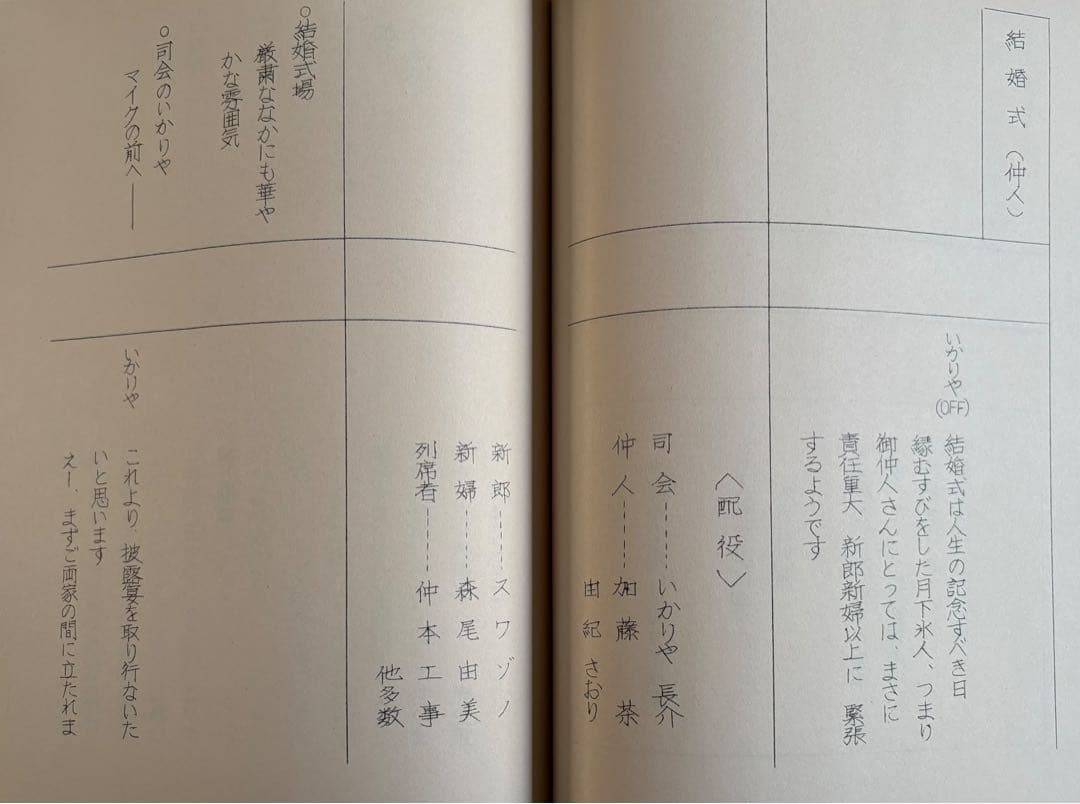 結婚式（仲人）
いかりや(OFF)
結婚式は人生の記念すべき日
縁むすびをした月下氷人、つまり
御仲人さんにとっては、まさに
責任重大 新郎新婦以上に 緊張
するようです
〈配役〉
司会……いかりや 長介
仲人……加藤 茶
由紀 さおり
新郎……スワ ゾノ
新婦……森尾 由美
列席者……仲本 工事
他多数
○結婚式場
厳粛ななかにも華や
かな雰囲気
○司会のいかりや
マイクの前へ――
いかりや
これより、披露宴を取り行ないた
いと思います
えー、まずご両家の間に立たれま